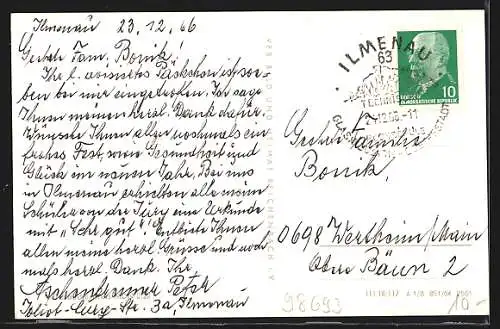 Ilmenau 23.12.66
Geehrte Fam. Bonik!
Ihr l. avisiertes Päckchen ist so-
eben bei mir eingetroffen. Ich sage
Ihnen meinen herzl. Dank dafür.
Wünsche Ihnen allen nochmals ein
frohes Fest, sowie Gesundheit und
Glück im neuen Jahr. Bei uns
in Ilmenau erhielten alle meine
Schüler von der Jury eine Urkunde
mit "Sehr gut". Entbiete Ihnen
allen meine herzl. Grüsse und noch-
mals herzl. Dank. Ihr
Peter
Joliot-Cury-Str. 3a, Ilmenau
ILMENAU
63
-11
10
DEUTSCHE
DEMOKRATISCHE REPUBLIK
Geehrte Familie
Bonik,
0698 Wertheim/Main
Obere Bäun 2
III/18/117
98693
10-